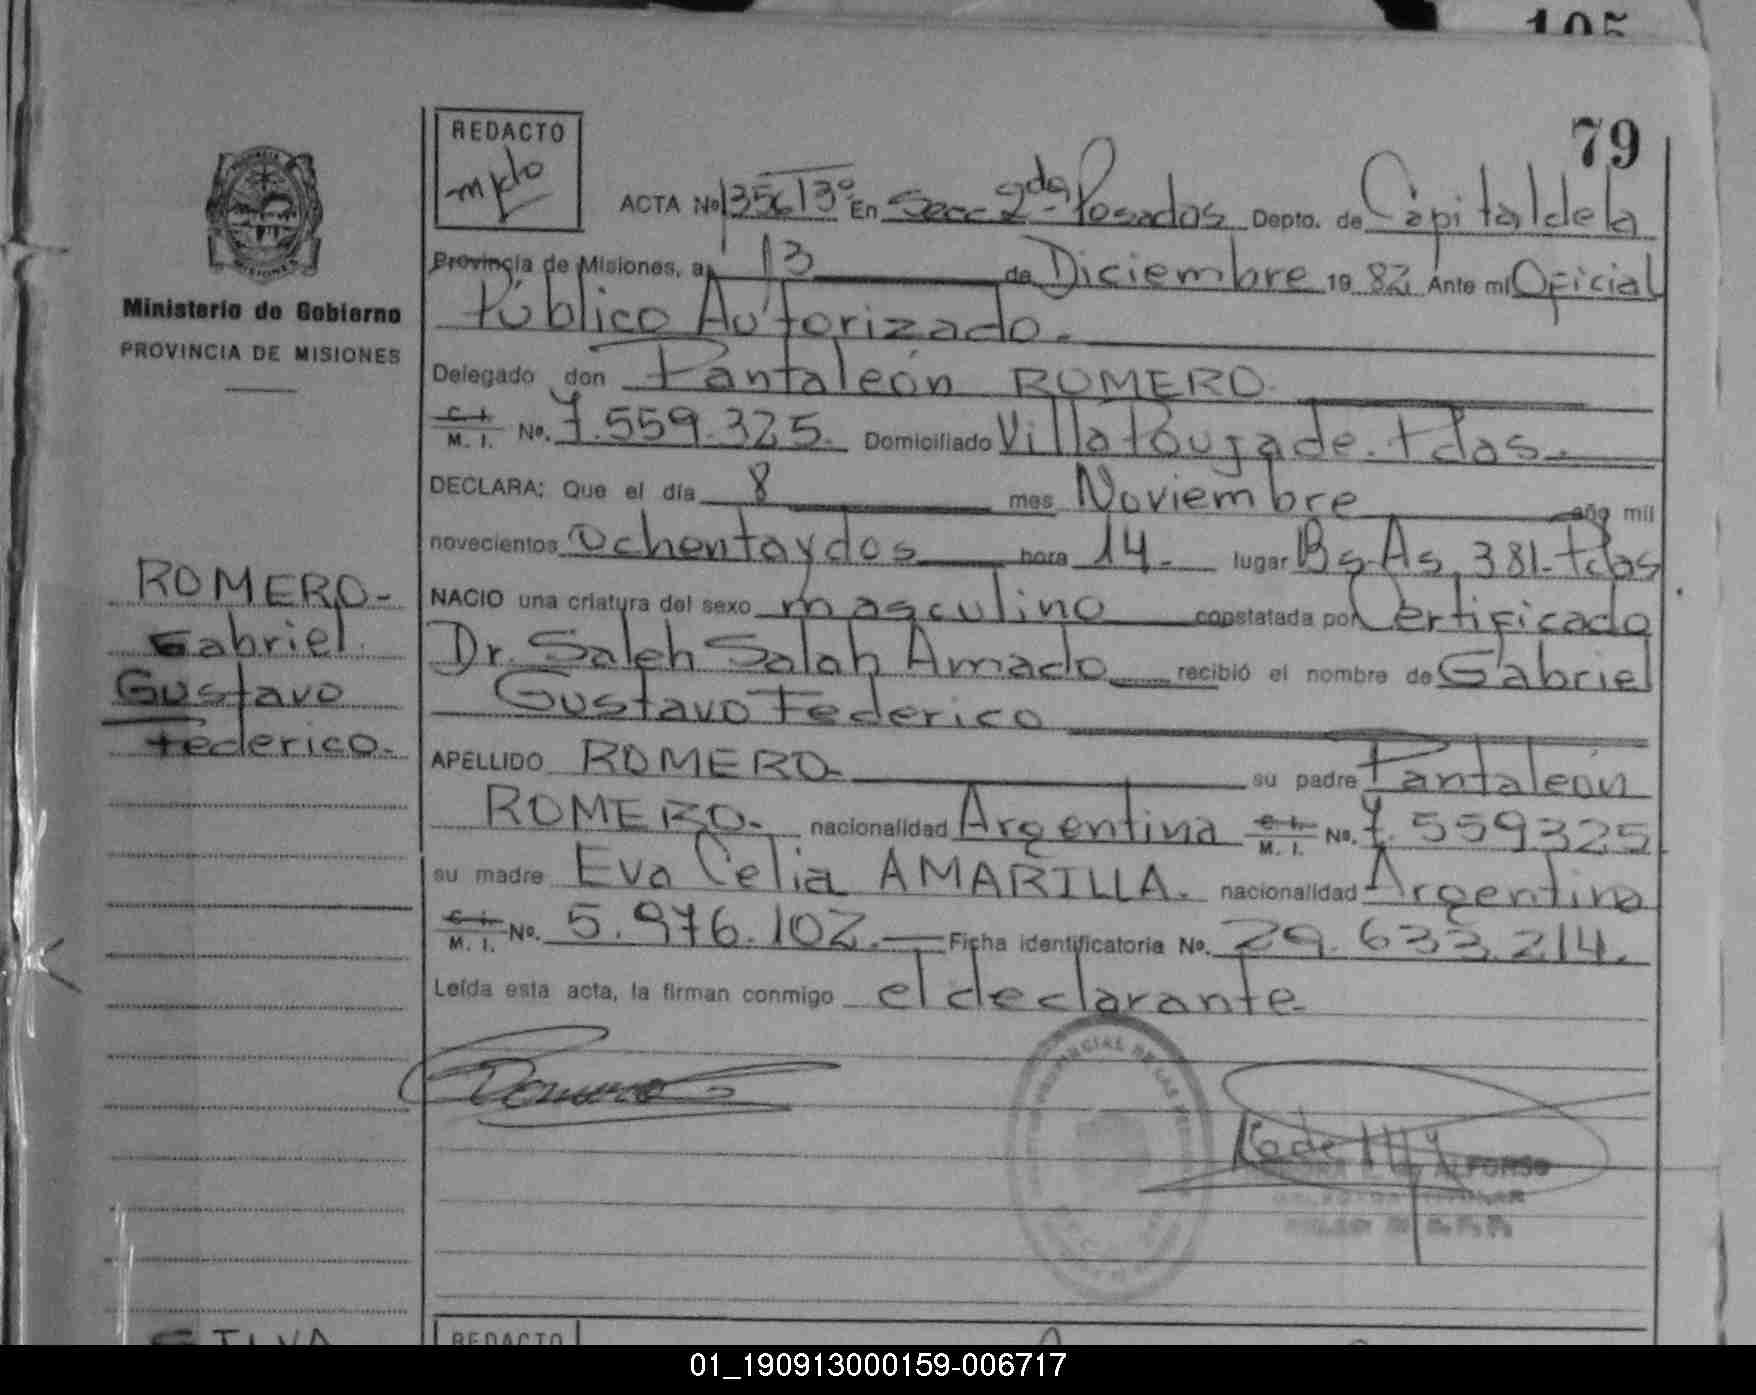 105
79
REDACTO
ACTA No 13561 3º En Secc 2da Posadas Depto. de Capital de la
Provincia de Misiones, a 13 de Diciembre 19 82 Ante mi Oficial
Público Autorizado.
Delegado don Pantaleón ROMERO.
C. I.
M. I. No. 7.559.325. Domiciliado Villa Poujade. Pdas.
DECLARA: Que el día 8 mes Noviembre año mil
novecientos Ochentaydos hora 14. lugar Bs As 381-Pdas
NACIO una criatura del sexo masculino constatada por Certificado
Dr. Saleh Salah Amado recibió el nombre de Gabriel
Gustavo Federico
APELLIDO ROMERO su padre Pantaleón
ROMERO. nacionalidad Argentina C. I. M. I. No. 7.559325
su madre Eva Celia AMARILLA. nacionalidad Argentina
C. I.
M. I. No. 5.976.102. Ficha identificatoria No. 29.633.214.
Leída esta acta, la firman conmigo el declarante
MISIONES
Ministerio de Gobierno
PROVINCIA DE MISIONES
ROMERO-
Gabriel
Gustavo
Federico.
Romero
ALFONSO
SILVA
REDACTO
01_190913000159-006717